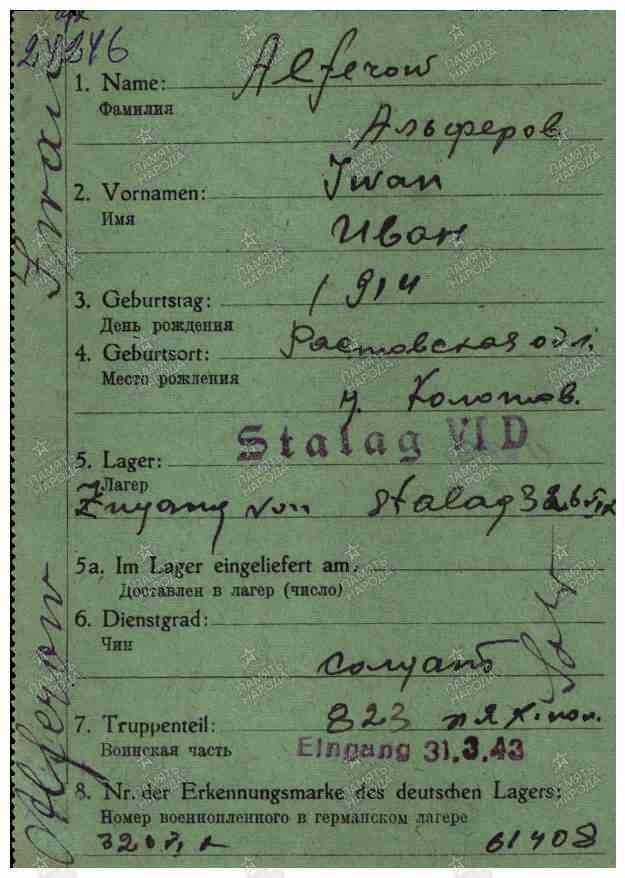 24246
1. Name: Alferow
Фамилия
Алферов
2. Vornamen: Iwan
Имя
Иван
3. Geburtstag: 1914
День рождения
4. Geburtsort: Растовская обл.
Место рождения
Stalag VI D
5. Lager:
Лагер
Zugang von Stalag 326 VI K
5a. Im Lager eingeliefert am.
Доставлен в лагер (число)
6. Dienstgrad:
Чин
солдат
Soldat
7. Truppenteil: 823
Воинская часть
Eingang 31.3.43
8. Nr. der Erkennungsmarke des deutschen Lagers:
Номер военнопленного в германском лагере
326 VI K 61408
Alferow Iwan
ПАМЯТЬ НАРОДА